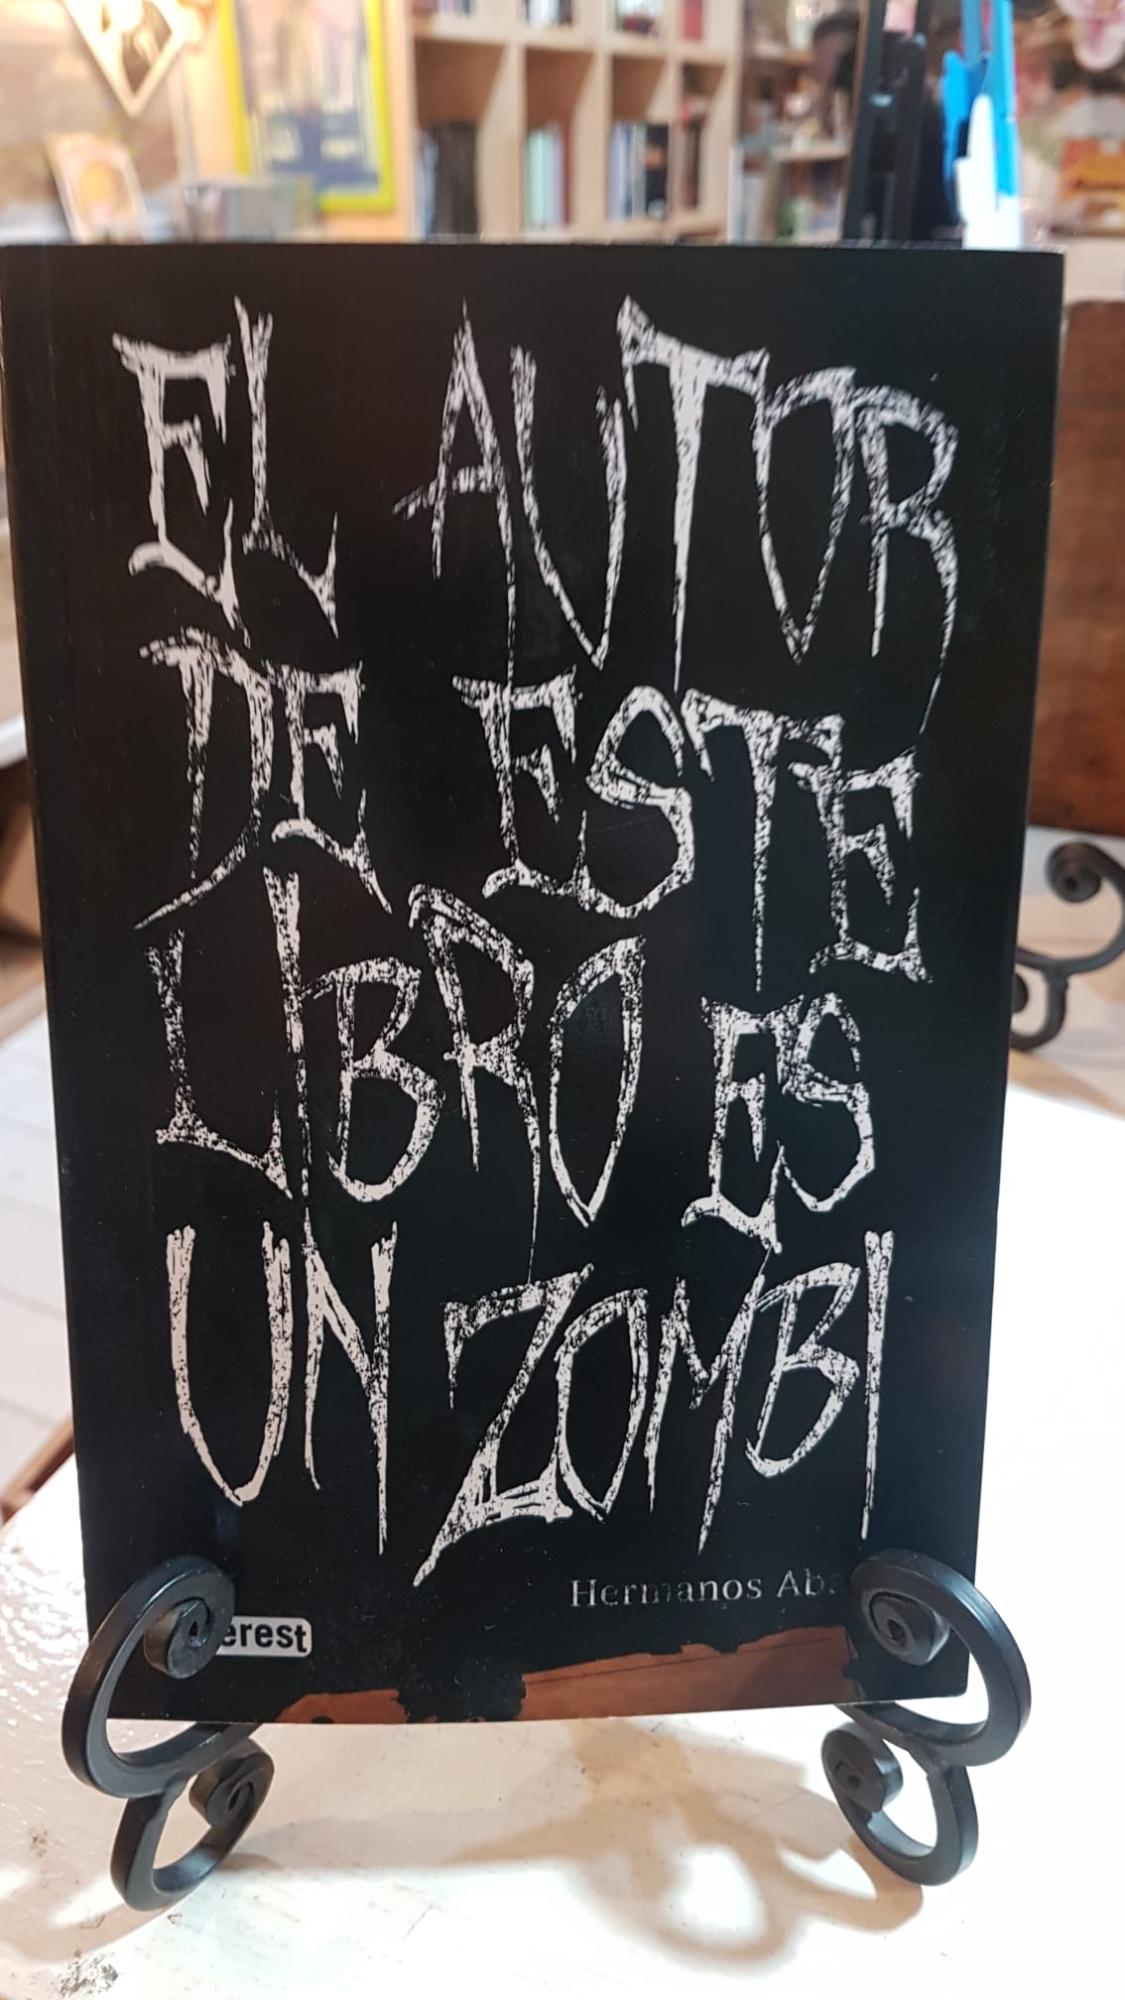 EL AUTOR
DE ESTE
LIBRO ES
UN ZOMBI
Hermanos